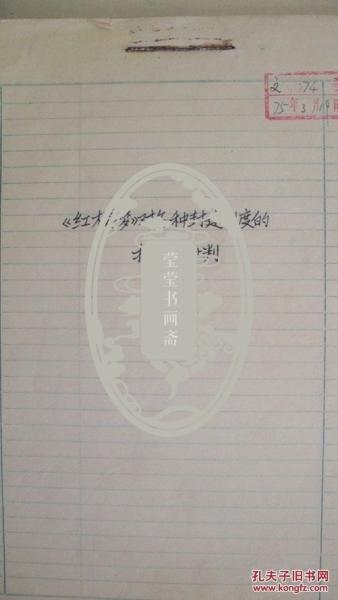 文 74
75年3月19
《红楼梦》对 种封建 度的
批判
莹莹书画斋
孔夫子旧书网
KONGFZ.COM